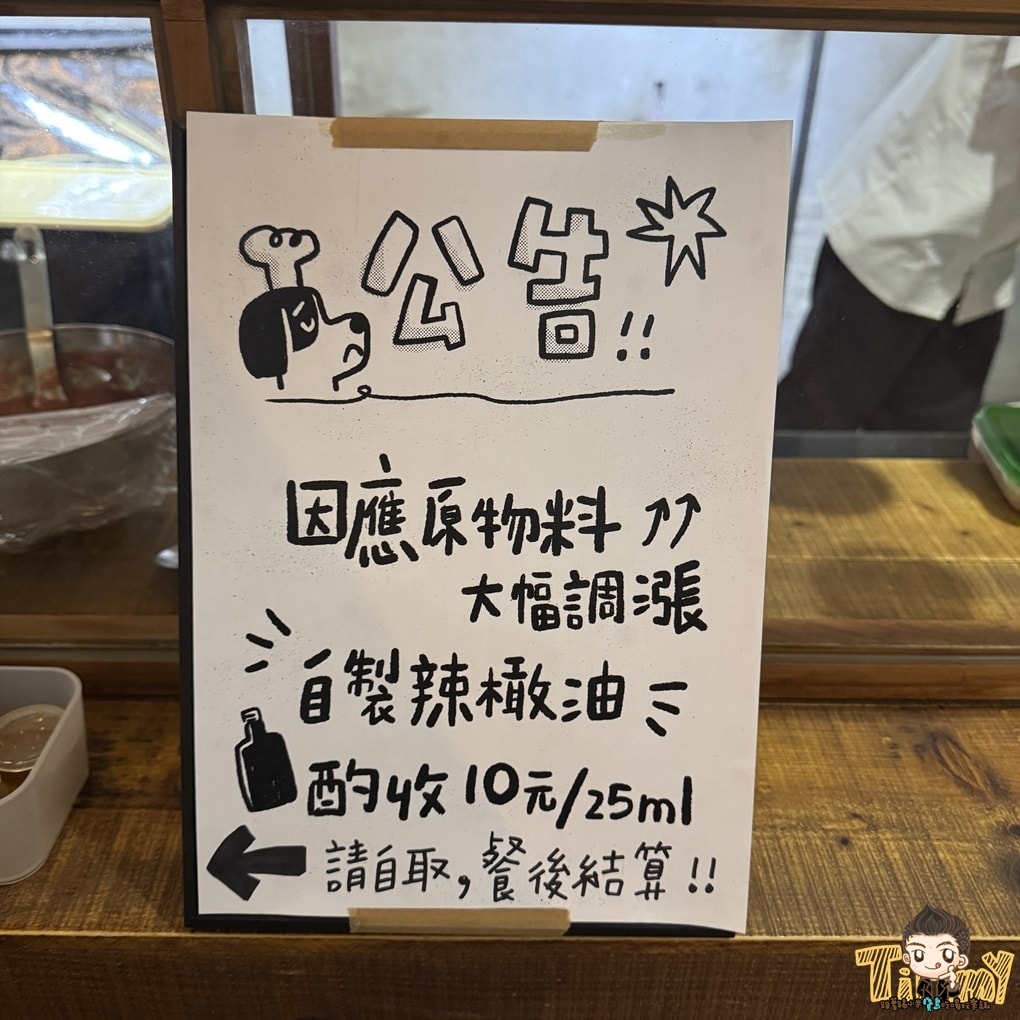 公告!!
因應原物料↑↑
大幅調漲
自製辣橄油
酌收10元/25ml
←請自取,餐後結算!!